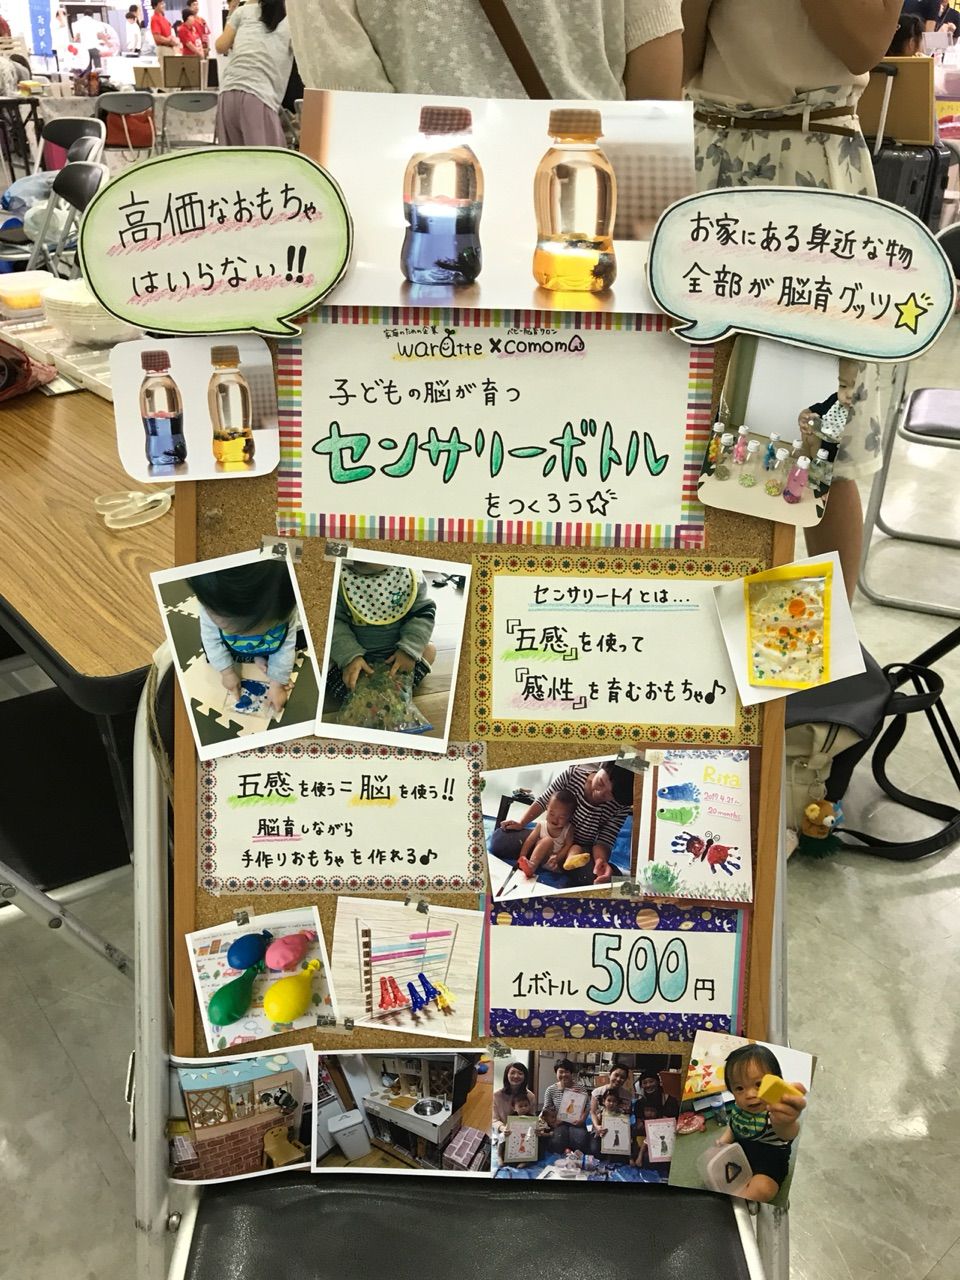 高価なおもちゃ
はいらない!!
お家にある身近な物
全部が脳育グッツ☆
家庭のための企業
waratte×comomo
子どもの脳が育つ
センサリーボトル
をつくろう☆
センサリートイとは…
『五感』を使って
『感性』を育むおもちゃ♪
五感を使う=脳を使う!!
脳育しながら
手作りおもちゃを作れる♪
Rita
20 months
1ボトル500円